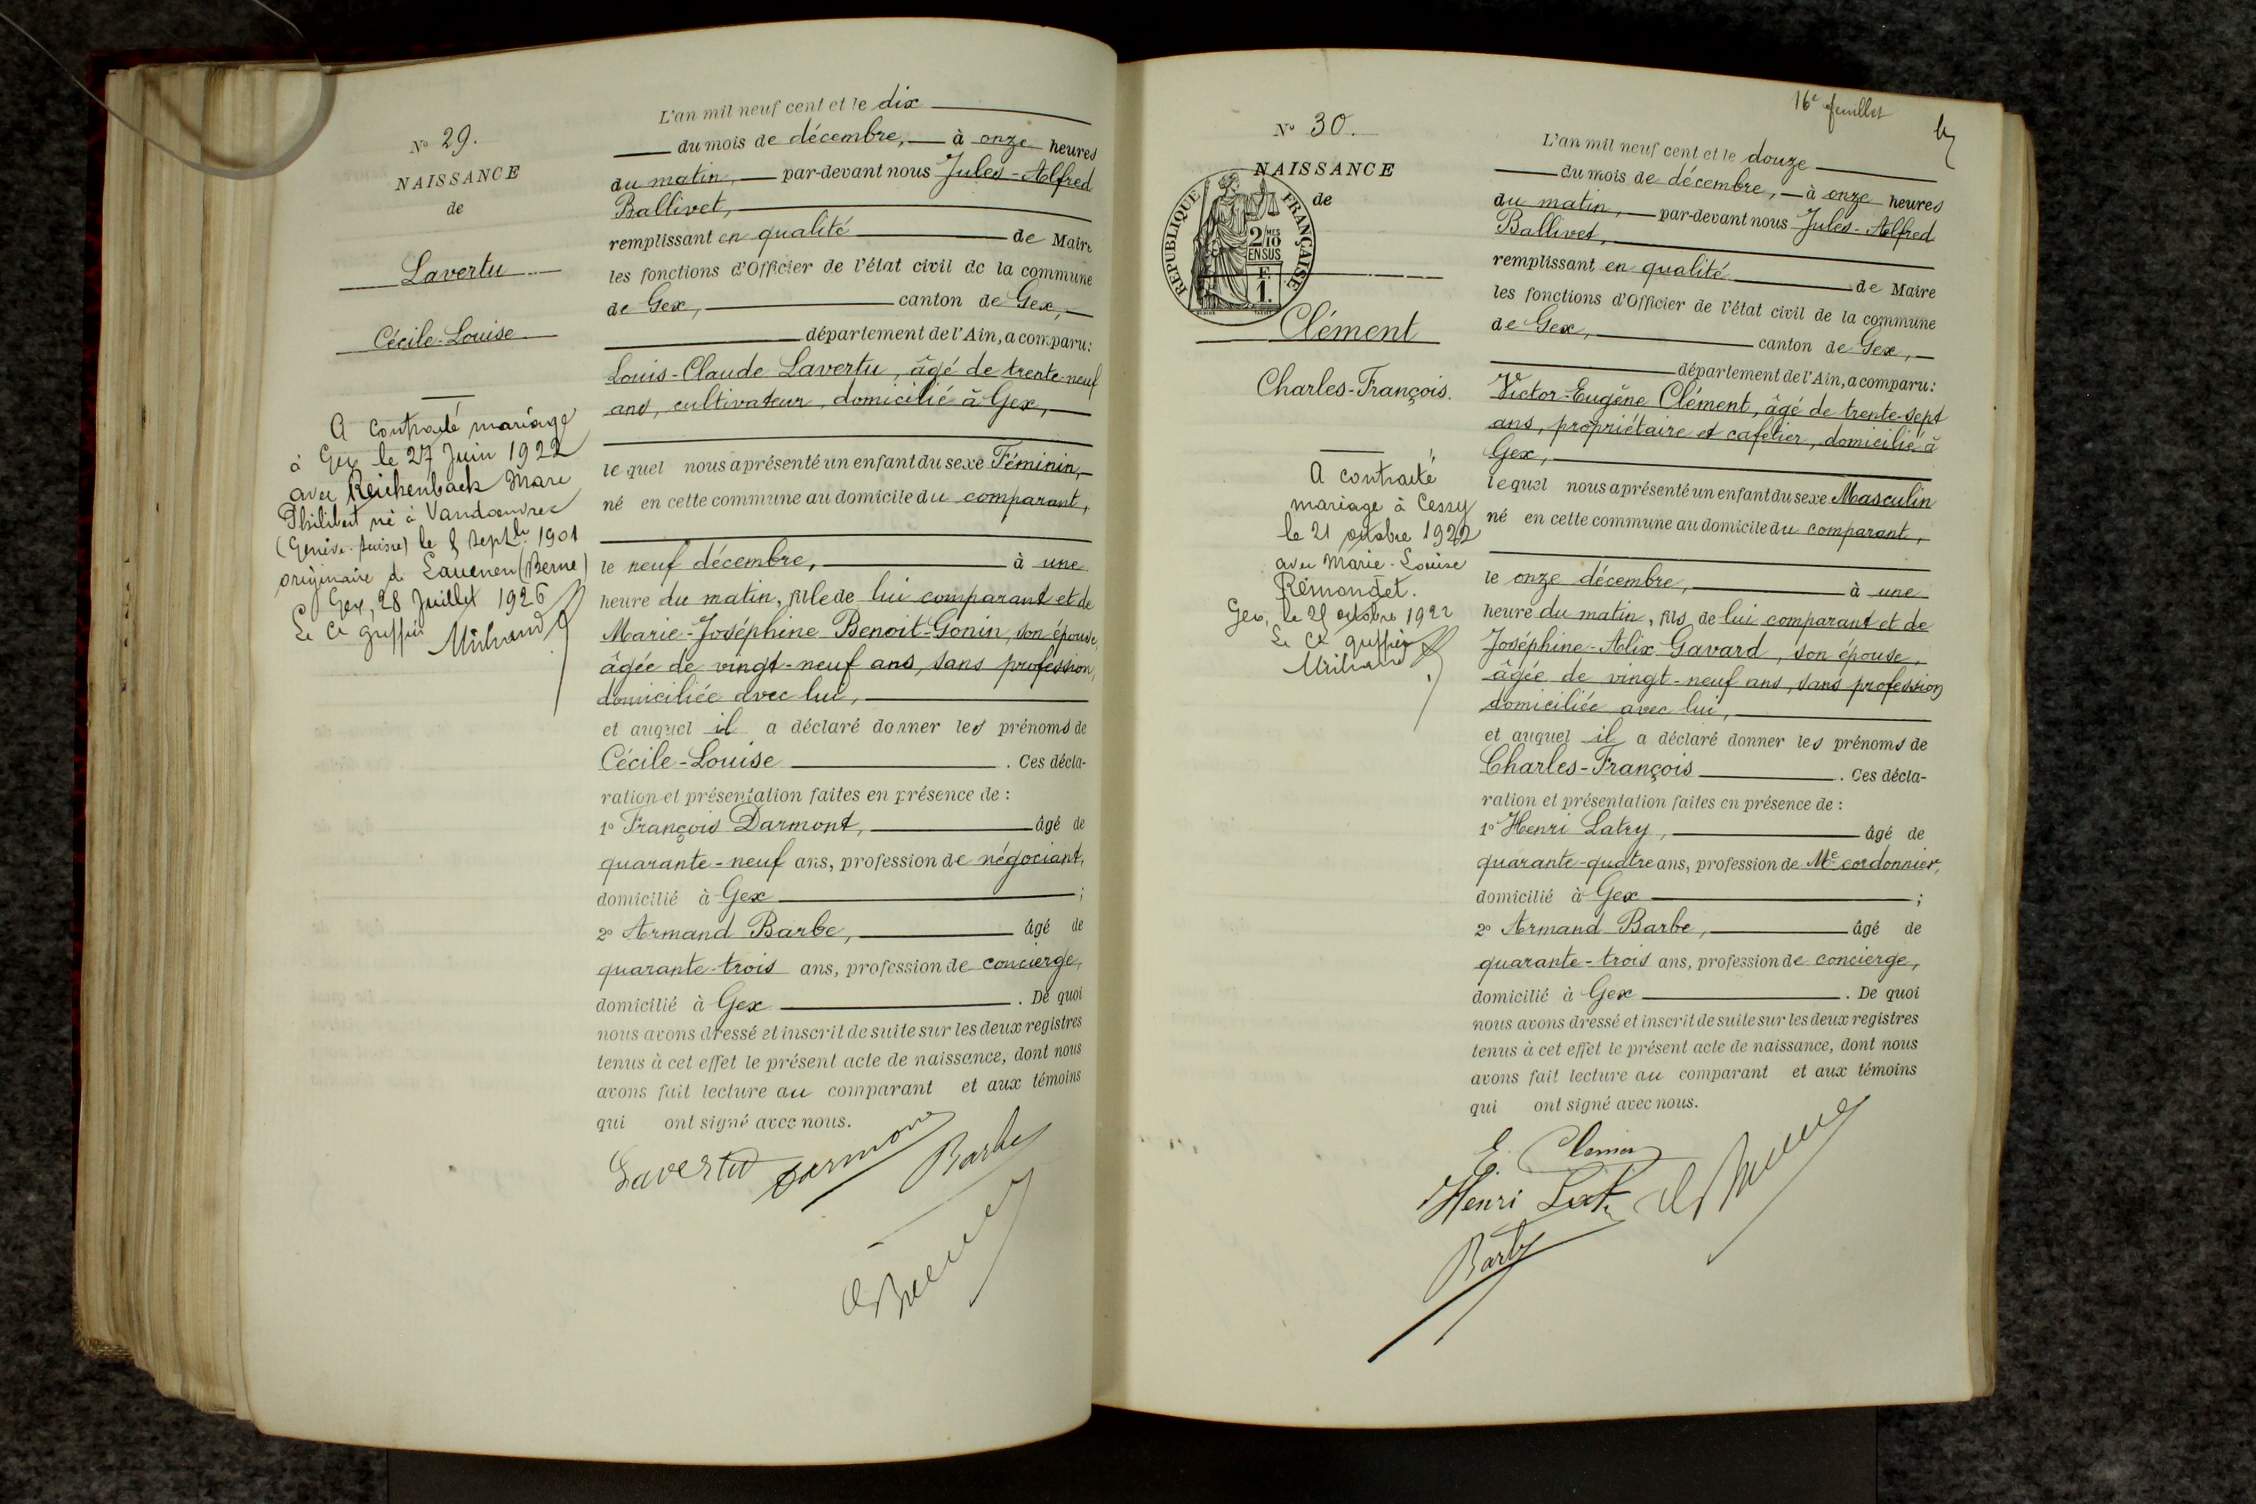 No 29.
NAISSANCE
de
Lavertu
Cécile-Louise
A contracté mariage
à Gex le 27 Juin 1922
avec Reichenback Marc
Philibert né à Vandoeuvres
(Genève-Suisse) le 8 Septbre 1901
originaire de Lauenen (Berne)
Gex, 28 Juillet 1926
Le Cs greffier
L'an mil neuf cent et le dix
du mois de décembre, à onze heures
du matin, par-devant nous Jules-Alfred
Ballivet,
remplissant en qualité de Maire
les fonctions d'Officier de l'état civil de la commune
de Gex, canton de Gex,
département de l'Ain, a comparu:
Louis-Claude Lavertu, âgé de trente-neuf
ans, cultivateur, domicilié à Gex,
lequel nous a présenté un enfant du sexe Féminin,
né en cette commune au domicile du comparant,
le neuf décembre, à une
heure du matin, fille de lui comparant et de
Marie-Joséphine Benoit-Gonin, son épouse,
âgée de vingt-neuf ans, sans profession,
domiciliée avec lui,
et auquel il a déclaré donner les prénoms de
Cécile-Louise. Ces décla-
ration et présentation faites en présence de :
1º François Darmont, âgé de
quarante-neuf ans, profession de négociant,
domicilié à Gex ;
2º Armand Barbe, âgé de
quarante-trois ans, profession de concierge,
domicilié à Gex. De quoi
nous avons dressé et inscrit de suite sur les deux registres
tenus à cet effet le présent acte de naissance, dont nous
avons fait lecture au comparant et aux témoins
qui ont signé avec nous.
Lavertu Darmont Barbe
16e feuillet
No 30.
NAISSANCE
de
RÉPUBLIQUE FRANÇAISE
2/10 MES
EN SUS
F.
1.
Clément
Charles-François.
A contracté
mariage à Cessy
le 21 octobre 1922
avec Marie-Louise
Rémondet.
Gex, le 21 octobre 1922
Le Cs greffier
L'an mil neuf cent et le douze
du mois de décembre, à onze heures
du matin, par-devant nous Jules-Alfred
Ballivet,
remplissant en qualité de Maire
les fonctions d'Officier de l'état civil de la commune
de Gex, canton de Gex,
département de l'Ain, a comparu:
Victor-Eugène Clément, âgé de trente-sept
ans, propriétaire et cafetier, domicilié à
Gex,
lequel nous a présenté un enfant du sexe Masculin
né en cette commune au domicile du comparant,
le onze décembre, à une
heure du matin, fils de lui comparant et de
Joséphine-Alix Gavard, son épouse,
âgée de vingt-neuf ans, sans profession
domiciliée avec lui,
et auquel il a déclaré donner les prénoms de
Charles-François. Ces décla-
ration et présentation faites en présence de :
1º Henri Latry, âgé de
quarante-quatre ans, profession de Me cordonnier,
domicilié à Gex ;
2º Armand Barbe, âgé de
quarante-trois ans, profession de concierge,
domicilié à Gex. De quoi
nous avons dressé et inscrit de suite sur les deux registres
tenus à cet effet le présent acte de naissance, dont nous
avons fait lecture au comparant et aux témoins
qui ont signé avec nous.
E. Clément
Henri
Barbe